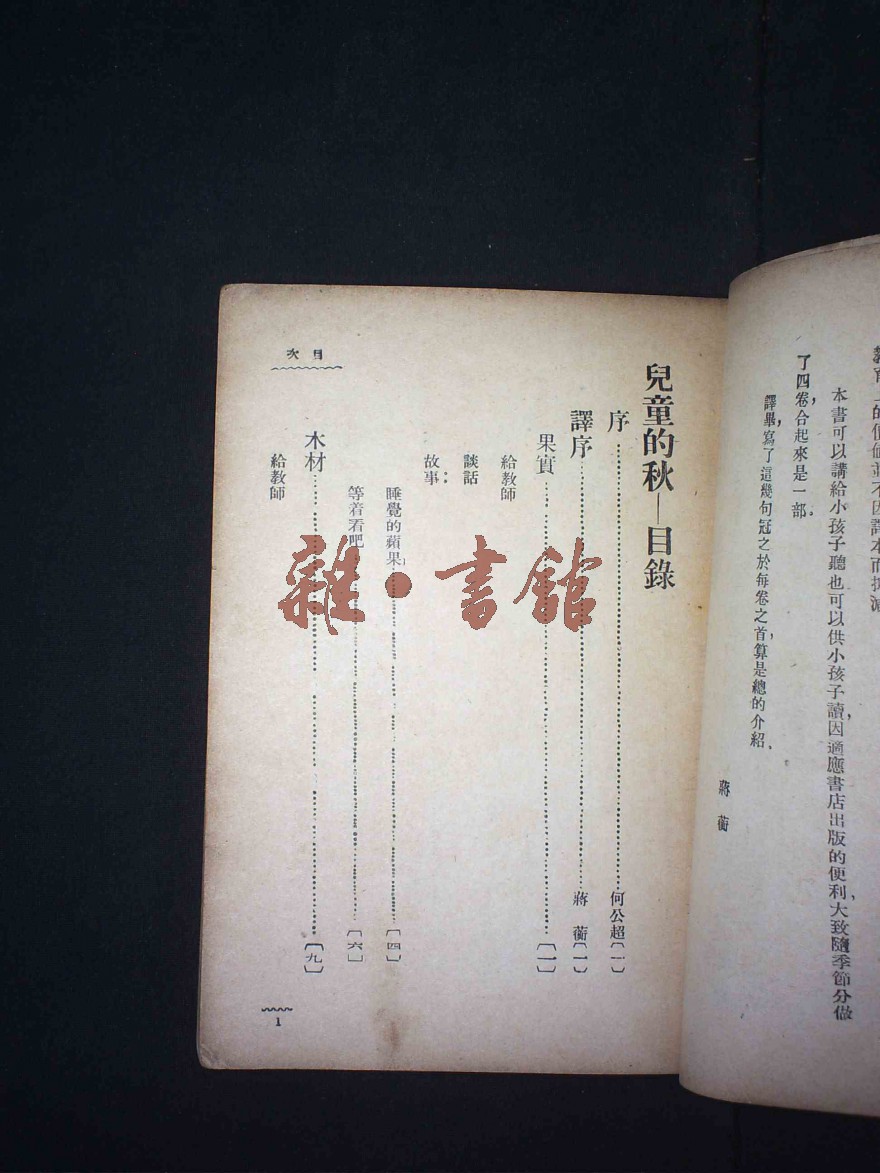 本書可以講給小孩子聽,也可以供小孩子讀,因適應書店出版的便利,大致隨季節分做
了四卷,合起來是一部。
譯畢,寫了這幾句冠之於每卷之首,算是總的介紹。
蔣蘅
兒童的秋—目錄
序……何公超〔一〕
譯序……蔣蘅〔一〕
果實……〔一〕
給教師
談話
故事:
睡覺的蘋果……〔四〕
等着看吧……〔六〕
木材……〔九〕
給教師
目次
1
雜·書館